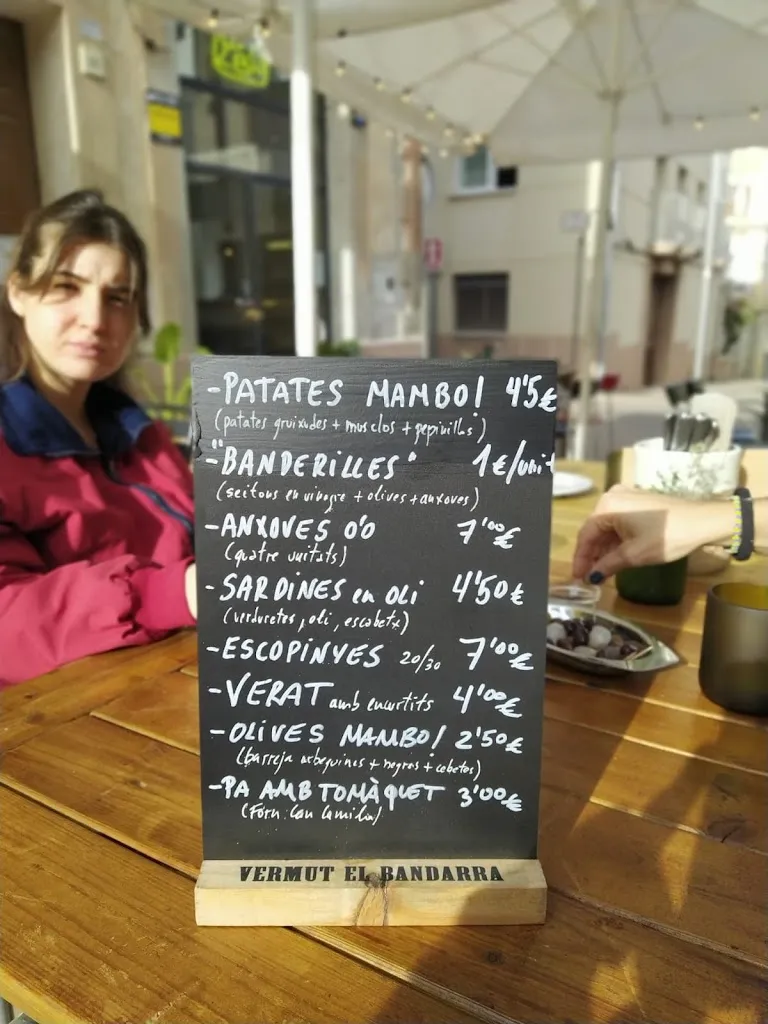 -PATATES MAMBO! 4'5€
(patates gruixudes + musclos + pepinillos)
-"BANDERILLES" 1€/unit
(seitons en vinagre + olives + anxoves)
-ANXOVES 0'0 7'00€
(quatre unitats)
-SARDINES en OLI 4'50€
(verduretes, oli, escabetx)
-ESCOPINYES 20/30 7'00€
-VERAT amb envurtits 4'00€
-OLIVES MAMBO! 2'50€
(barreja arbequines + negres + cebetes)
-PA AMB TOMÀQUET 3'00€
(Forn: Can
VERMUT EL BANDARRA